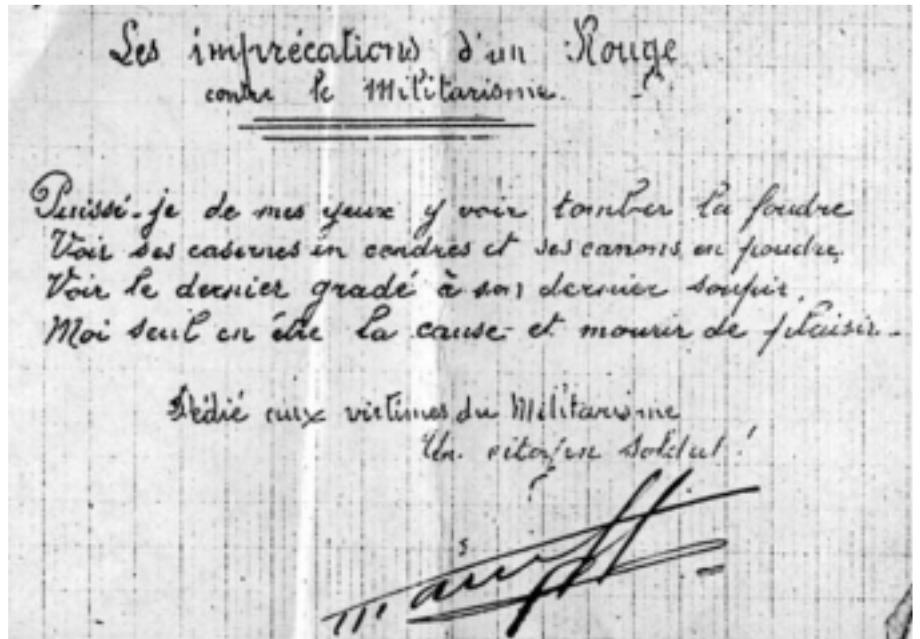 Les imprécations d'un Rouge
contre le Militarisme.
Puissé-je de mes yeux y voir tomber la foudre
Voir ses casernes en cendres et ses canons en poudre
Voir le dernier gradé à son dernier soupir,
Moi seul en être la cause et mourir de plaisir.
Dédié aux victimes du Militarisme
Un citoyen soldat!